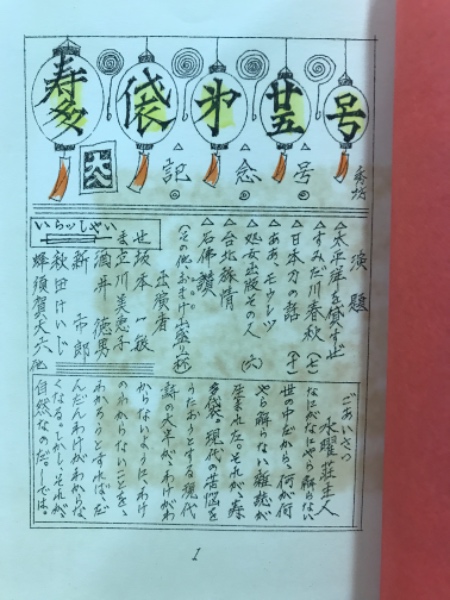 寿多袋 第廿五号
記念号
演題
△太平洋を笑わす也
△すみだ川春秋(七)
△日本刀の話(十)
△ああ、モウレツ
△処女出版その人(六)
△台北旅情
△石佛讃
(その他、おまけ山盛り一杯)
出演者
いらッしゃい
世坂本一敏
立川美恵子
酒井徳男
新市郎
秋田けいじ
蜂須賀天六 他
ごあいさつ
水曜荘主人
なにがなにやら解らない
世の中だから、何が何
やら解らない雑誌が
生まれた。それが、寿
多袋。現代の苦悩を
うたおうとする現代
詩の大半が、わけがわ
からないように、わけ
のわからないことを、
わかろうとすれば、だ
んだんわけがわからな
くなる。しかし、それが、
自然なのだ。―では。
1